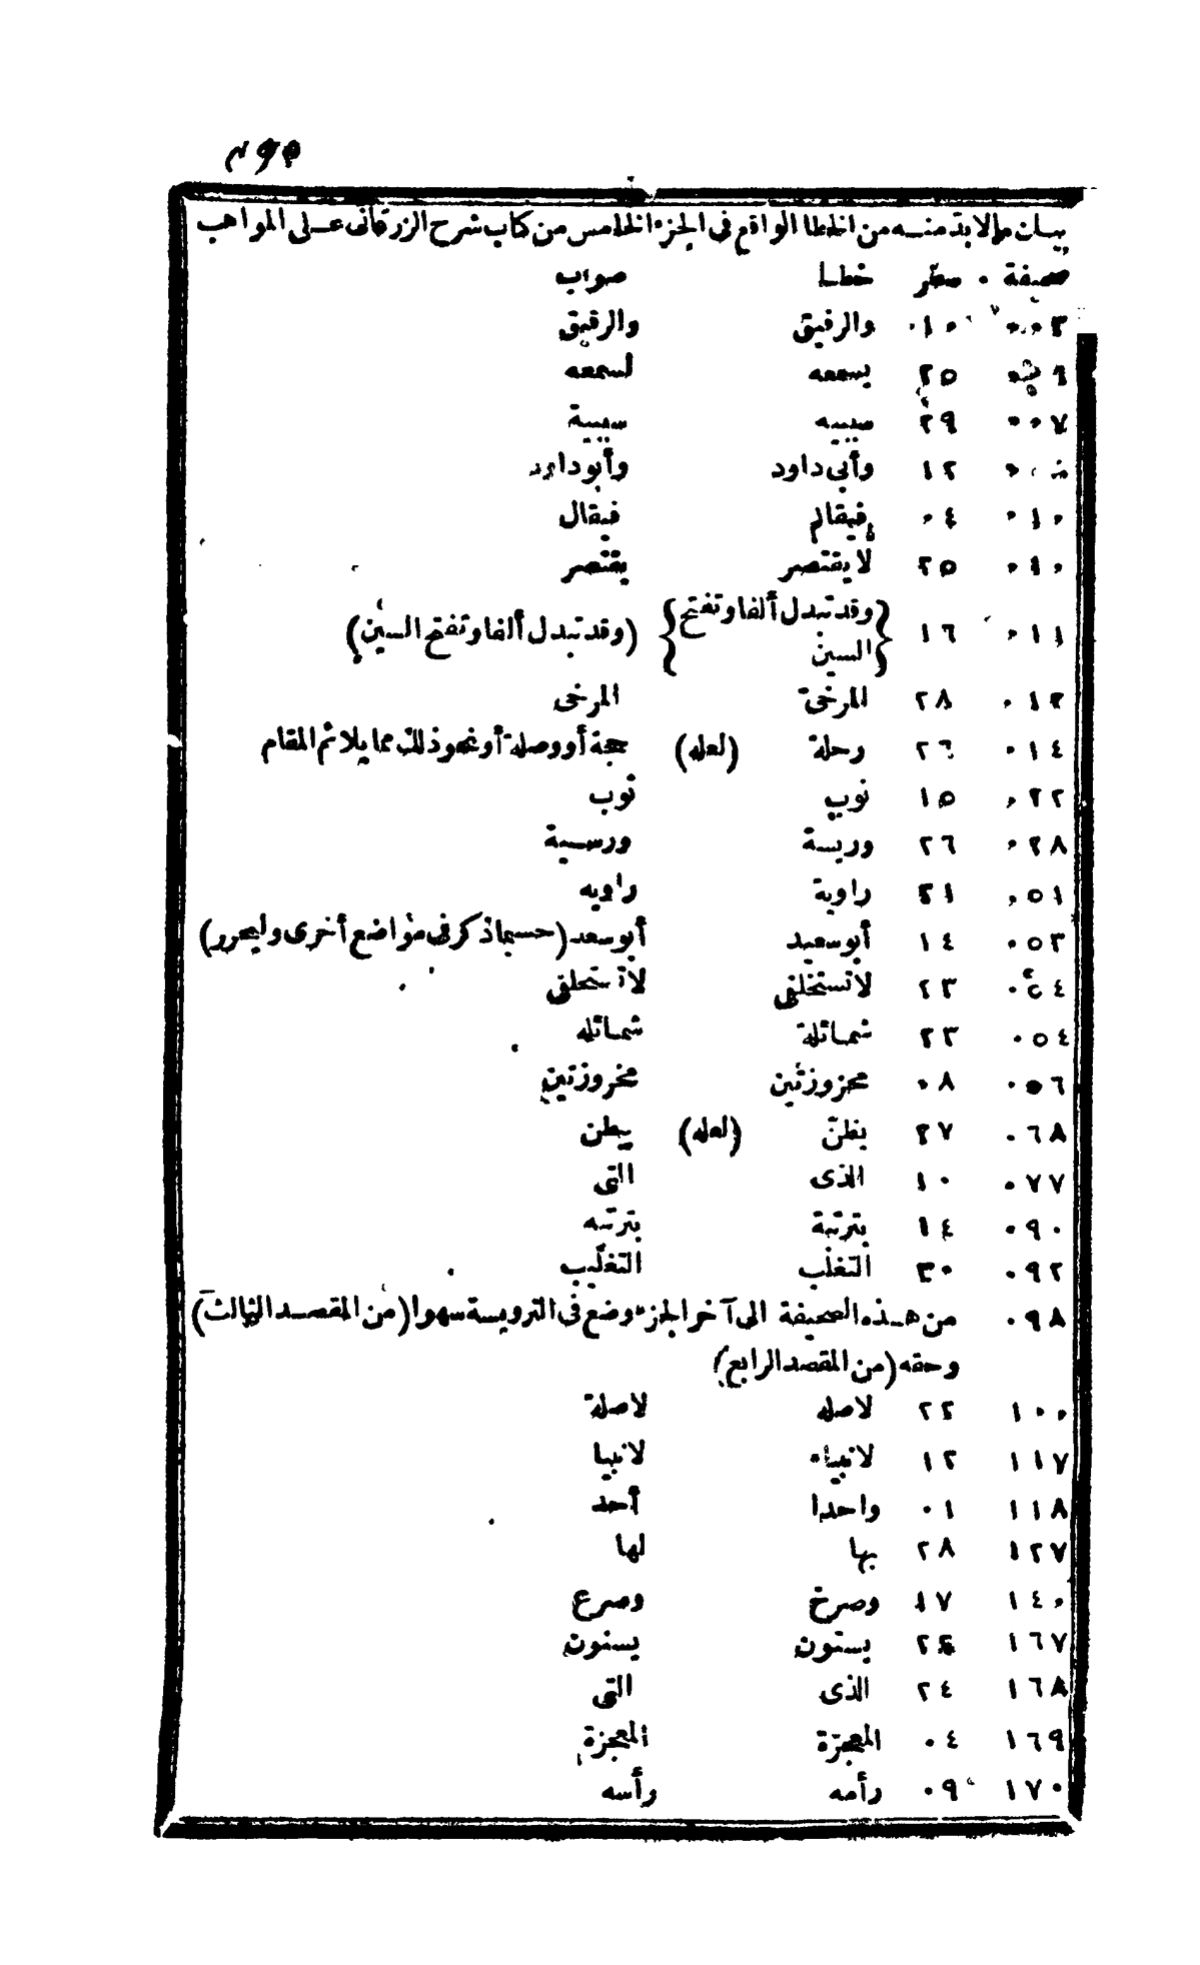 بيان ما لا بد منه من الخطا الواقع في الجزء الخامس من كتاب شرح الزرقاني على المواهب
صحيفة سطر خطا صواب
٠٠٣ ١٠ والرفيق والرقيق
٠٠٦ ٢٥ يسمعه لسمعه
٠٠٧ ٢٩ سيبيه سيبية
١٢ وأبى داود وأبو داود
٠١٠ ٠٤ فيقالم فيقال
٠١٠ ٢٥ لا يقتصر يقتصر
٠١١ ١٦ {وقد تبدل ألفا وتفتح السين} (وقد تبدل ألفا وتفتح السين)
٠١٣ ٢٨ المرخىّ المرخى
٠١٤ ٢٦ رحلة (لعله) حجة أو وصلة أو نحو ذلك مما يلائم المقام
٠٢٢ ١٥ نوب ثوب
٠٢٨ ٢٦ وربسة ورسية
٠٥١ ٢١ راوية راويه
٠٥٣ ١٤ أبو سعيد أبو سعد (حسبما ذكر فى مواضع أخرى وليحرر)
٠٥٤ ٢٣ لا تستخلفى
٠٥٤ ٢٣ شمائلة شمائله
٠٥٦ ٠٨ محزوزتين مخروزتين
٠٦٨ ٢٧ بظنّ (لعله) يبطن
٠٧٧ ١٠ الذى التى
٠٩٠ ١٤ بترتبة بترتبه
٠٩٢ ٣٠ التغلب التغليب
٠٩٨ من هذه الصحيفة الى آخر الجزء وضع فى الترويسة سهوا (من المقصد الثالث)
وحقه (من المقصد الرابع)
١٠٠ ٢٢ لاصله لاصلة
١١٧ ١٢ لانبياء لانبيا
١١٨ ٠١ واحدا أحد
١٢٧ ٢٨ بها لها
١٤٠ ١٧ وصرخ وصرع
١٦٧ ٢٤ يستون يسنون
١٦٨ ٢٤ الذى التى
١٦٩ ٠٤ المعجزة المعجزة
١٧٠ ٠٩ رأمه رأسه